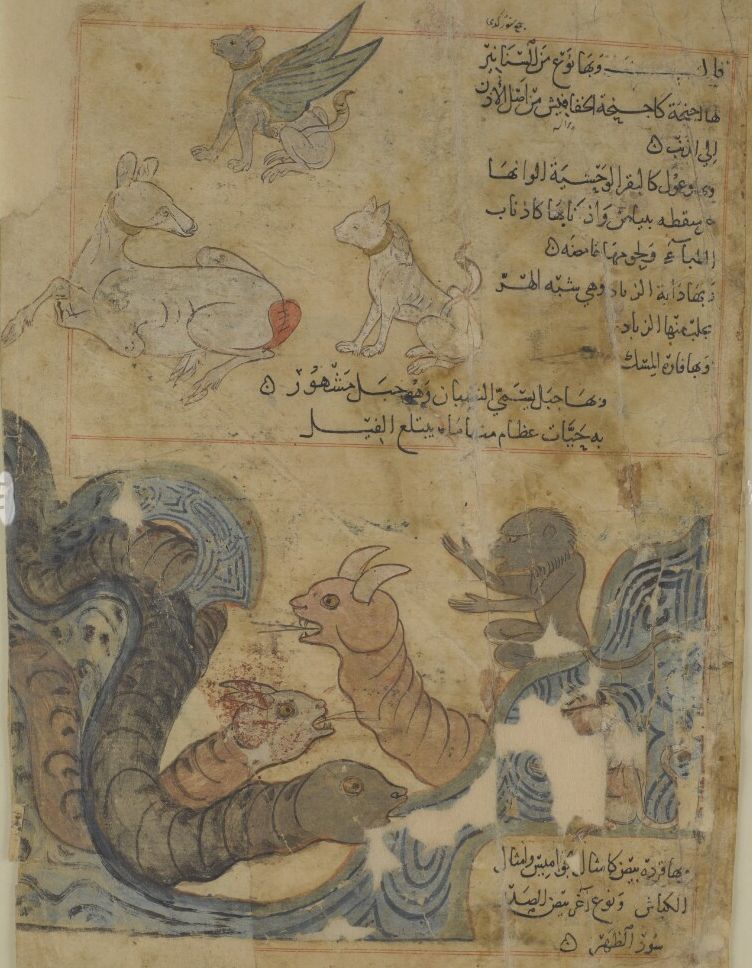 قال وبها نوع من السنانير
لها اجنحة كاجنحة الخفافيش من اصل الاذن
الى الذنب
وبها وعول كالبقر الوحشية الوانها
منقطه ببياض واذنابها كاذناب
الظباء ولحومها حامضه
وبها دابة الزباد وهي شبه الهرّ
يجلب منها الزباد
وبها فارة المسك
وبها جبل يسمى النصبان وهو جبل مشهور
به حيّات عظام منها ما يبتلع الفيل
بها قردة بيض كامثال الجواميس وامثال
الكباش ونوع آخر بيض الصدر
سود الظهر